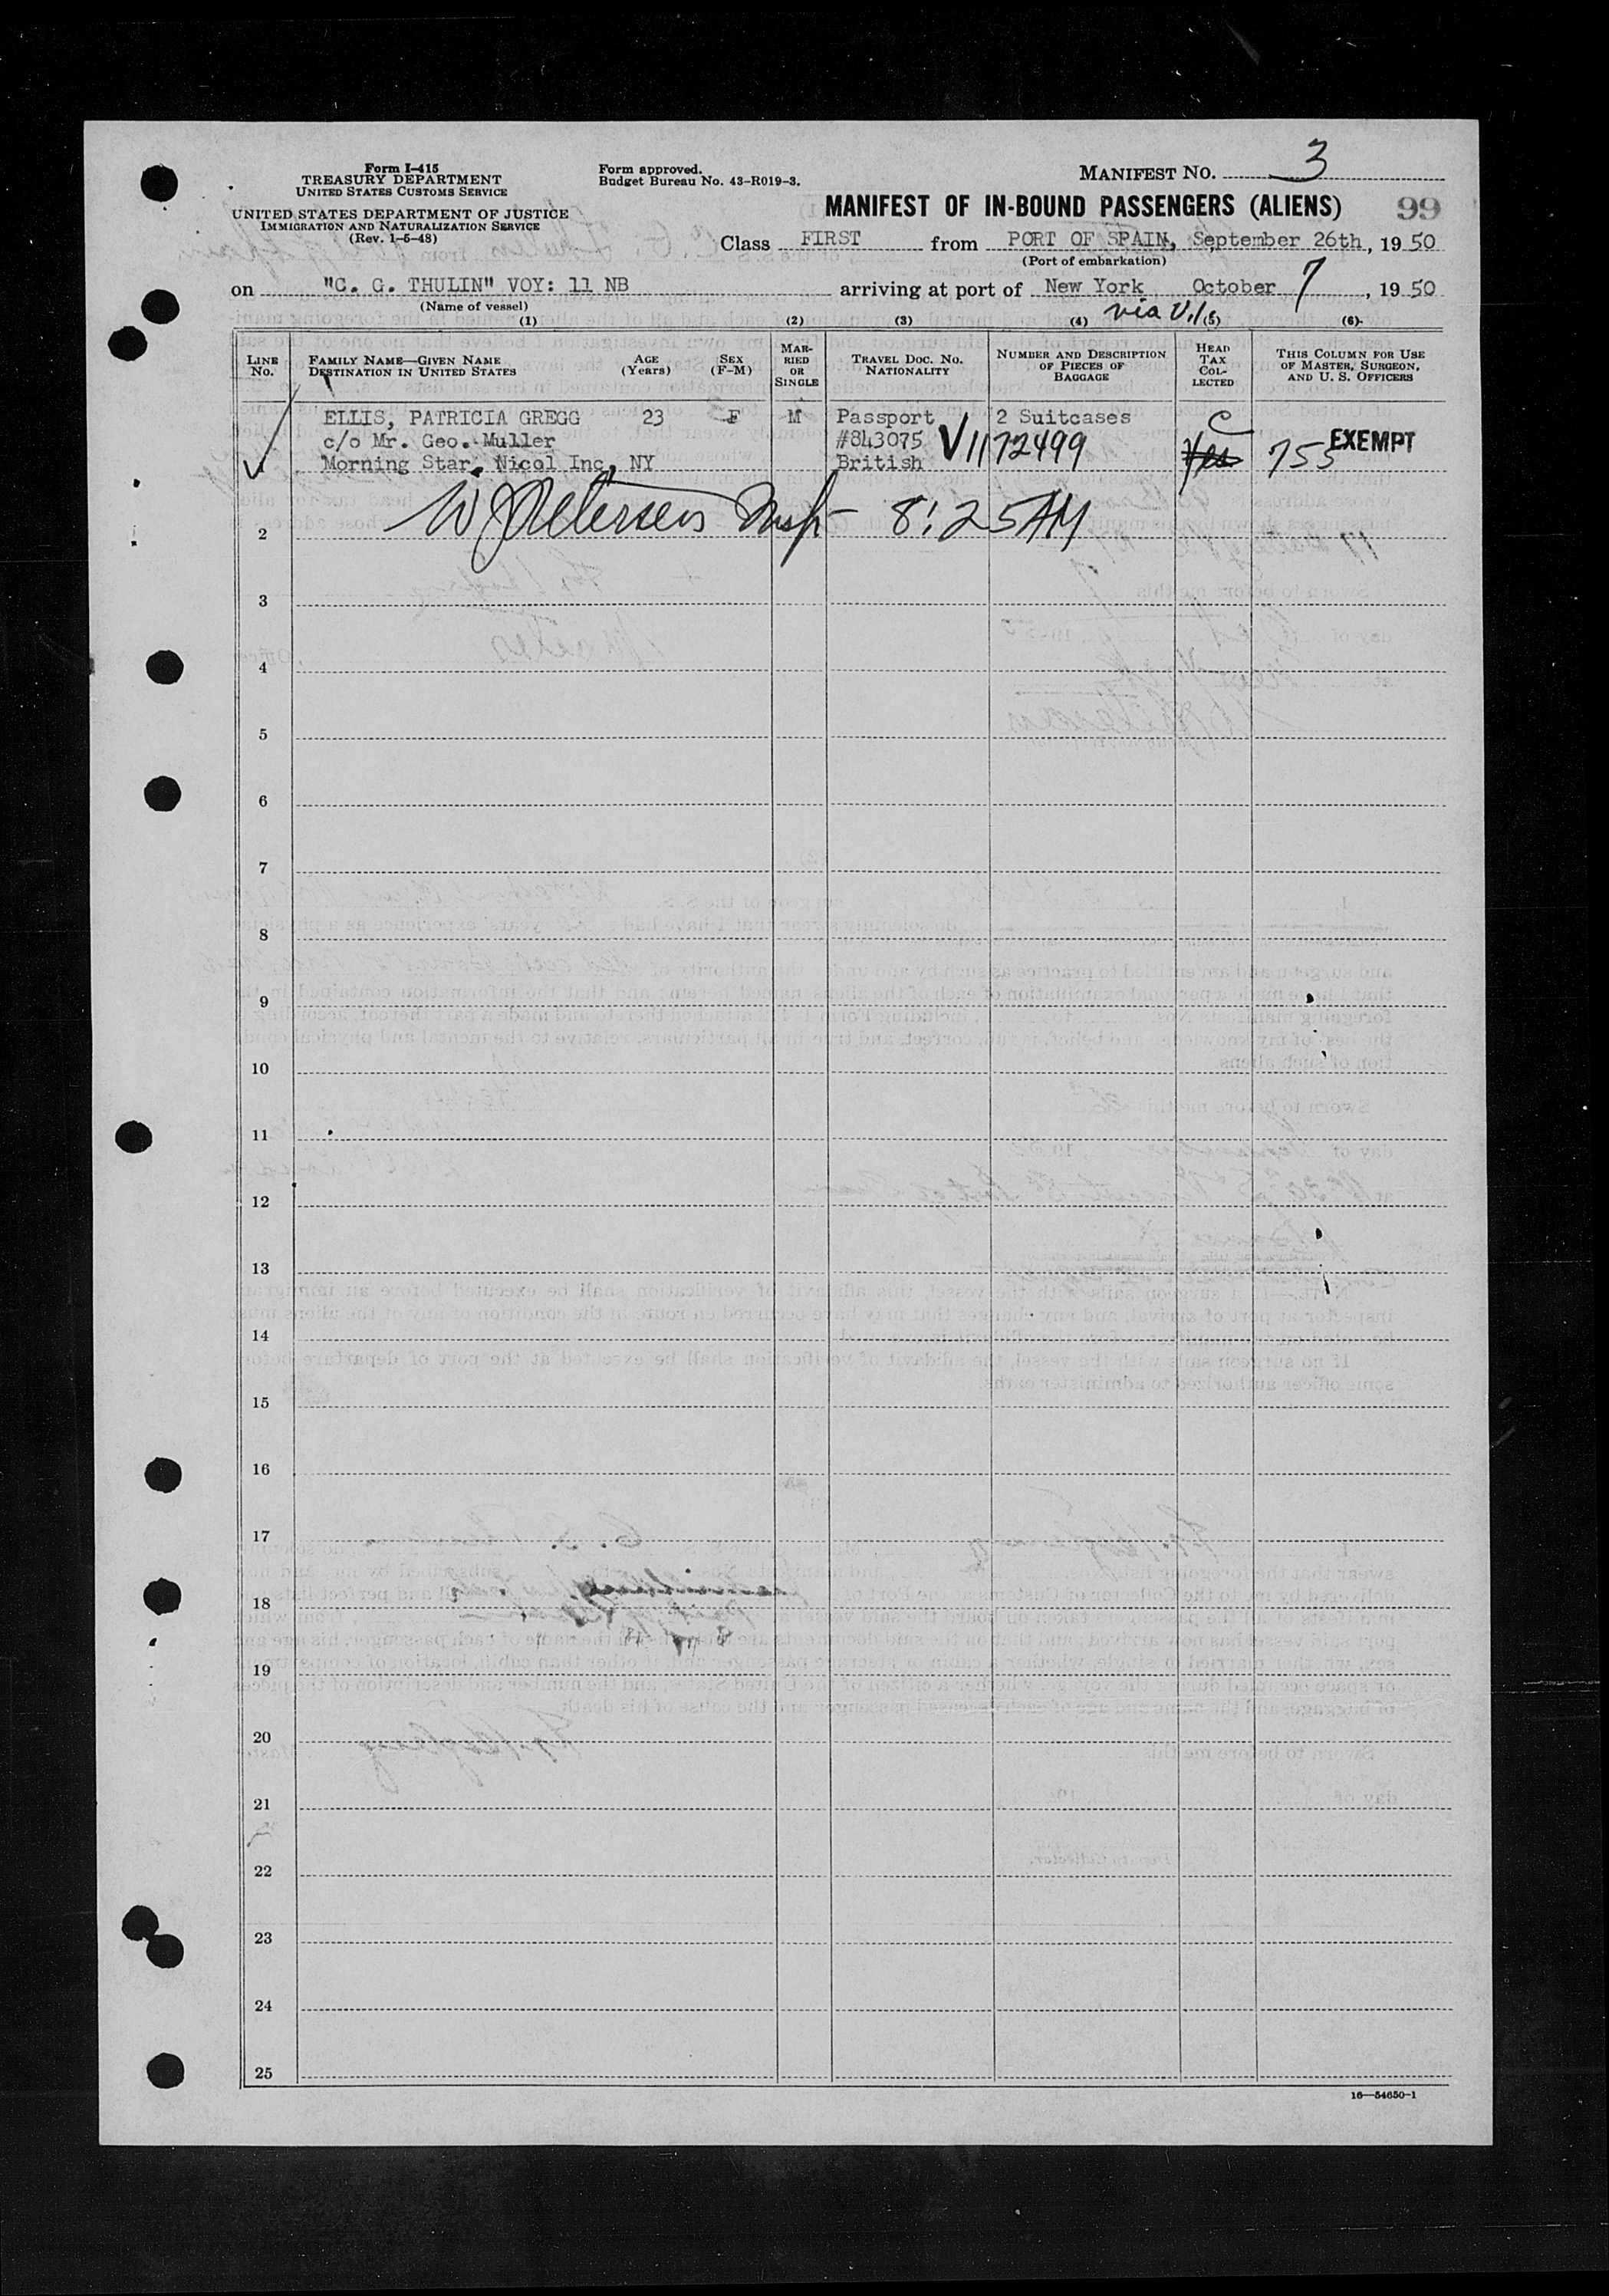 Form I-415
TREASURY DEPARTMENT
UNITED STATES CUSTOMS SERVICE
UNITED STATES DEPARTMENT OF JUSTICE
IMMIGRATION AND NATURALIZATION SERVICE
(Rev. 1-5-48)
Form approved.
Budget Bureau No. 43-R019-3.
MANIFEST NO. 3
MANIFEST OF IN-BOUND PASSENGERS (ALIENS) 99
Class FIRST from PORT OF SPAIN, September 26th, 1950
(Port of embarkation)
on "C. G. THULIN" VOY: 11 NB arriving at port of New York October 7, 1950
(Name of vessel)
via
(1) (2) (3) (4) (5) (6)
LINE No. FAMILY NAME—GIVEN NAME DESTINATION IN UNITED STATES AGE (Years) SEX (F-M) MARRIED OR SINGLE TRAVEL DOC. NO. NATIONALITY NUMBER AND DESCRIPTION OF PIECES OF BAGGAGE HEAD TAX COLLECTED THIS COLUMN FOR USE OF MASTER, SURGEON, AND U. S. OFFICERS
ELLIS, PATRICIA GREGG 23 F M Passport 2 Suitcases C
c/o Mr. Geo. Muller #843075 V1172499 Yes 755 EXEMPT
1 Morning Star, Nicol Inc, NY British
W J Petersen Insp 8:25 AM
2
3
4
5
6
7
8
9
10
11
12
13
14
15
16
17
18
19
20
21
22
23
24
25
16—54650-1